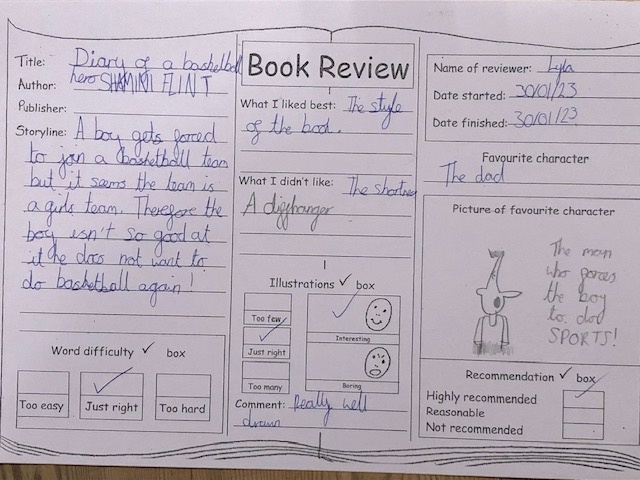 Title: Diary of a basketball
hero SHAMINI FLINT
Author:
Publisher:
Storyline: A boy gets forced
to join a basketball team
but it seems the team is
a girls team. Therefore the
boy isn't so good at
it he does not want to
do basketball again!
Word difficulty ✓ box
Too easy
Just right
Too hard
Book Review
What I liked best: The style
of the book.
What I didn't like: The shortney
A cliffhanger
Illustrations ✓ box
Too few
Just right
Too many
Interesting
Boring
Comment: Really well
drawn
Name of reviewer: Lyla
Date started: 30/01/23
Date finished: 30/01/23
Favourite character
The dad
Picture of favourite character
The man
who forces
the boy
to do
SPORTS!
Recommendation ✓ box
Highly recommended
Reasonable
Not recommended